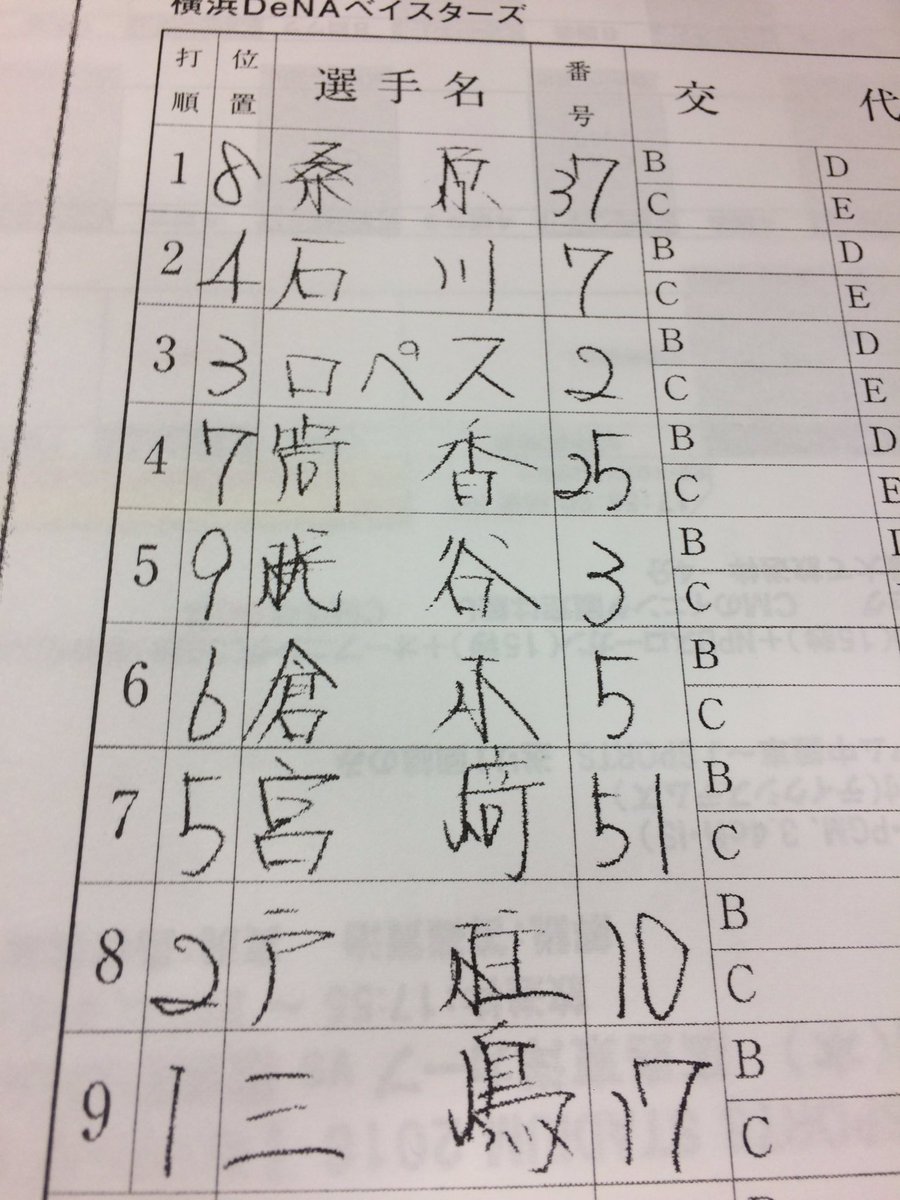 横浜DeNAベイスターズ
打順 位置 選手名 番号 交代
1 8 桑原 37 B D
C E
2 4 石川 7 B D
C E
3 3 ロペス 2 B D
C E
4 7 筒香 25 B D
C E
5 9 梶谷 3 B D
C
6 6 倉本 5 B
C
7 5 宮﨑 51 B
C
8 2 戸柱 10 B
C
9 1 三嶋 17 B
C